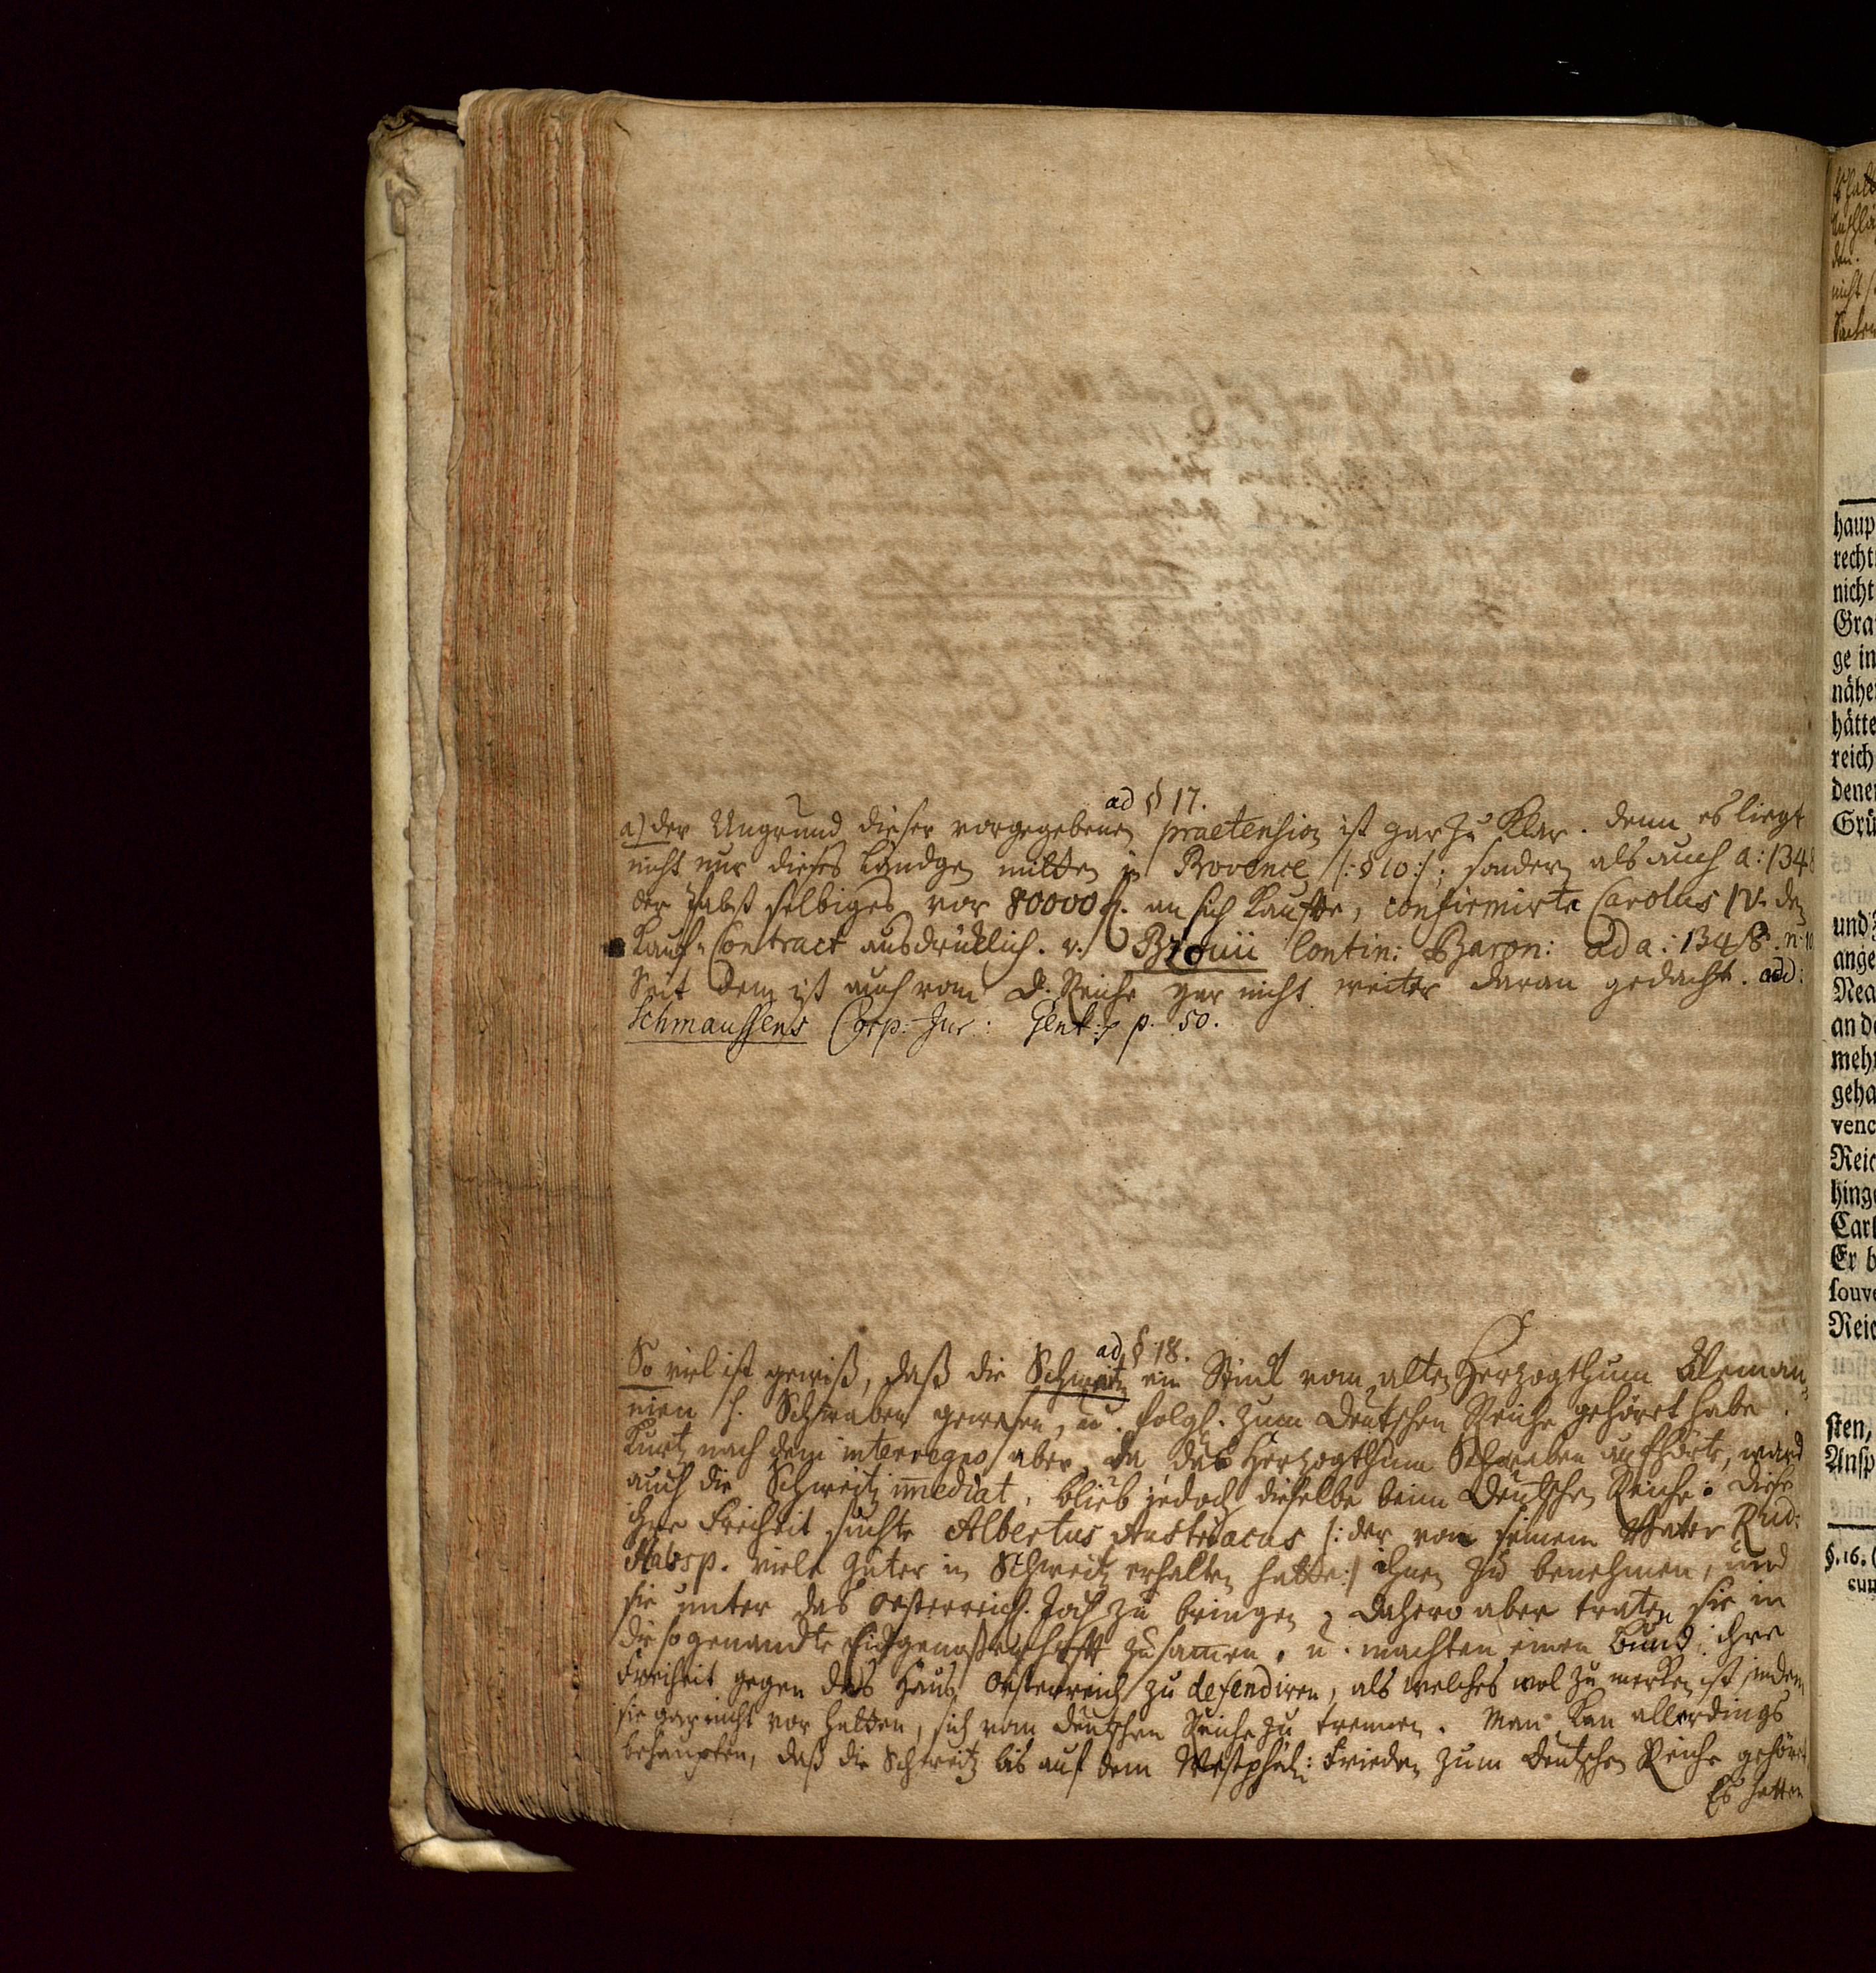 ad § 17.
a) der Ungrund dieser vorgegebenen praetension ist gar zu klar. denn es liegt
nicht nur dieses Ländgen mitten in Provence /: § 10 :/; sondern als auch a: 1348
der Pabst selbiges vor 80000 fl. an sich kaufte, confirmirte Carolus IV. den
Kauf-Contract ausdrücklich. v. Bzovii Contin: Baron: ad a: 1348. n: 10
Seit dem ist auch vom D. Reiche gar nicht weiter daran gedacht. add:
Schmaussens Corp: Jur: Gent: p. 50.
ad § 18.
So viel ist gewiß, daß die Schweitz ein Stück vom alten Herzogthum Aleman-
nien s. Schwaben gewesen, u. folgl. zum Deutschen Reiche gehört habe.
Kurtz nach dem interregno aber, da das Herzogthum Schwaben aufhörte, ward
auch die Schweitz immediat, blieb jedoch dieselbe beim Deutschen Reiche. Diese
ihre Freiheit suchte Albertus Austriacus /: der von seinem Vater Rud:
Habsp. viele Güter in Schweitz erhalten hatte :/ ihnen zu benehmen, und
sie unter das oesterreich. Joch zu bringen, dahero aber traten sie in
die so genandte Eidgenoßenschafft zusamen, u. machten einen Bund, ihre
Freiheit gegen das Haus Oesterreich zu defendiren, als welches wol zu merken ist, indem
sie gar nicht vor hatten, sich vom deutschen Reiche zu trennen. Man kan allerdings
behaupten, daß die Schweitz bis auf dem Westphäl: Frieden zum Deutschen Reiche gehört
Es hatten
nicht
haup
recht
nicht
Gra
ge in
nähe
hätte
reich
dene
Grü
und
ange
Nea
an d
meh
geha
venc
Reic
hing
Carl
Er b
souv
Reic
sten,
Ansp
§. 16.